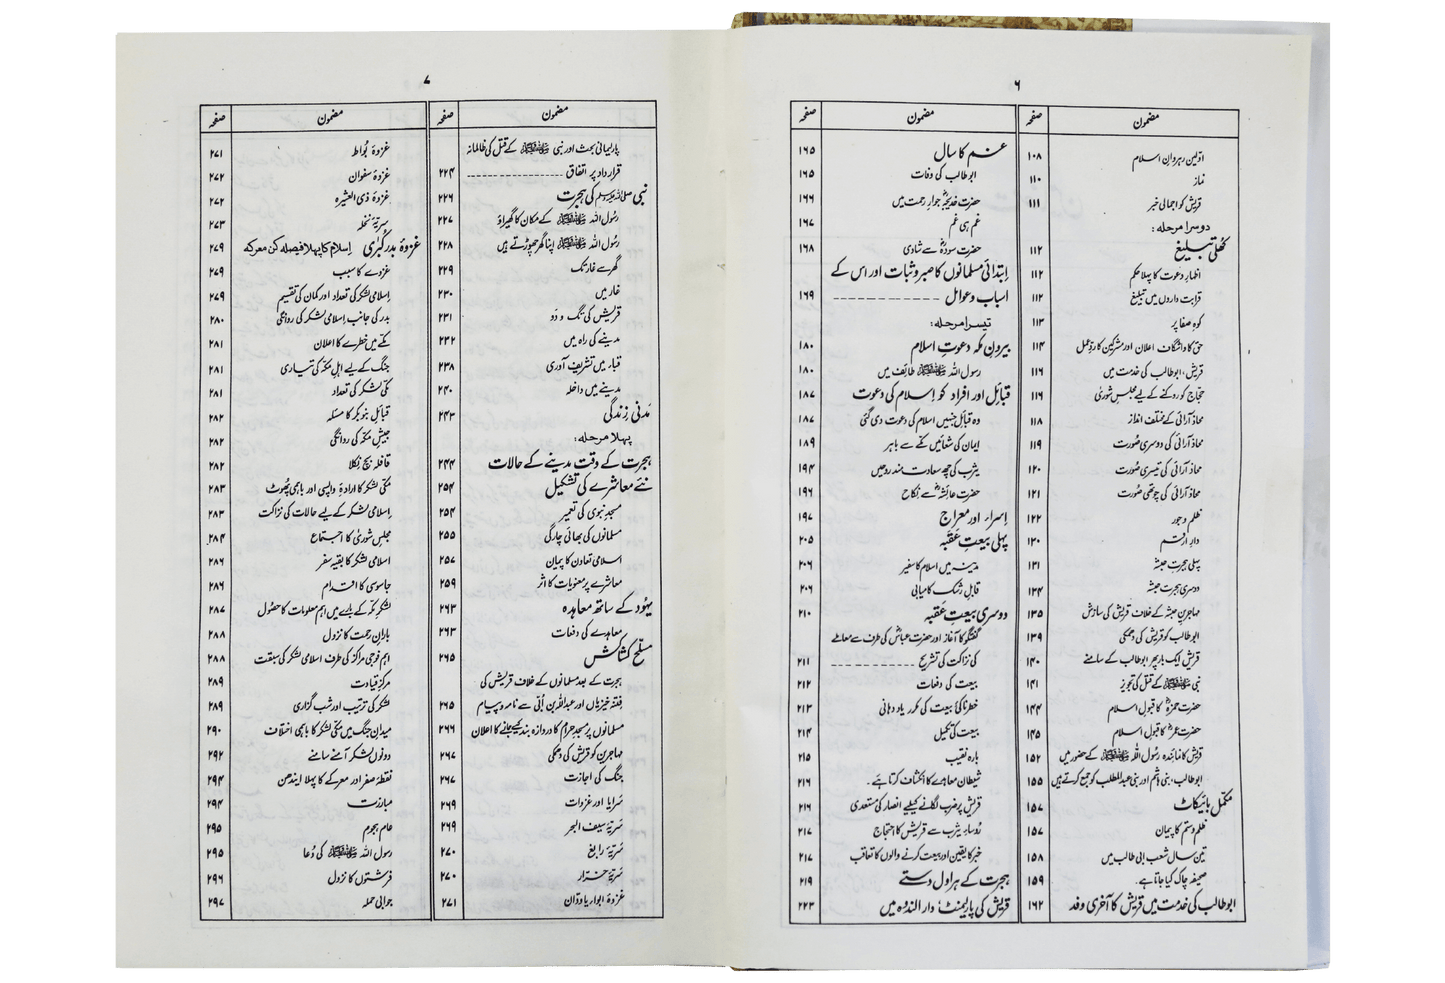 ۶
مضمون صفحہ
اوّلین رہروانِ اسلام ۱۰۸
نماز ۱۱۰
قریش کو اجمالی خبر ۱۱۱
دوسرا مرحلہ:
کھلی تبلیغ ۱۱۲
اظہارِ دعوت کا پہلا حکم ۱۱۲
قرابت داروں میں تبلیغ ۱۱۲
کوہِ صفا پر ۱۱۳
حق کا واشگاف اعلان اور مشرکین کا ردِعمل ۱۱۴
قریش، ابوطالب کی خدمت میں ۱۱۶
حجاج کو روکنے کے لیے مجلسِ شوریٰ ۱۱۶
محاذ آرائی کے مختلف انداز ۱۱۸
محاذ آرائی کی دوسری صُورت ۱۱۹
محاذ آرائی کی تیسری صُورت ۱۲۰
محاذ آرائی کی چوتھی صُورت ۱۲۱
ظلم و جور ۱۲۲
دارِ ارقم ۱۳۰
پہلی ہجرتِ حبشہ ۱۳۱
دوسری ہجرتِ حبشہ ۱۳۴
مہاجرینِ حبشہ کے خلاف قریش کی سازش ۱۳۵
ابوطالب کو قریش کی دھمکی ۱۳۹
قریش ایک بار پھر ابوطالب کے سامنے ۱۴۰
نبی ﷺ کے قتل کی تجویز ۱۴۱
حضرت حمزہؓ کا قبولِ اسلام ۱۴۴
حضرت عمرؓ کا قبولِ اسلام ۱۴۵
قریش کا نمائندہ رسُول اللہ ﷺ کے حضور میں ۱۵۲
ابوطالب، بنی ہاشم اور بنی عبدالمطلب کو جمع کرتے ہیں ۱۵۵
مکمل بائیکاٹ ۱۵۷
ظلم و ستم کا پیمان ۱۵۷
تین سال شعب ابی طالب میں ۱۵۸
صحیفہ چاک کیا جاتا ہے۔ ۱۵۹
ابوطالب کی خدمت میں قریش کا آخری وفد ۱۶۲
مضمون صفحہ
غم کا سال ۱۶۵
ابوطالب کی وفات ۱۶۵
حضرت خدیجہؓ جوارِ رحمت میں ۱۶۶
غم ہی غم ۱۶۷
حضرت سودہؓ سے شادی ۱۶۸
ابتدائی مسلمانوں کا صبر و ثبات اور اس کے
اسباب و عوامل ۱۶۹
تیسرا مرحلہ:
بیرونِ مکہ دعوتِ اسلام ۱۸۰
رسول اللہ ﷺ طائف میں ۱۸۰
قبائل اور افراد کو اسلام کی دعوت ۱۸۷
وہ قبائل جنہیں اسلام کی دعوت دی گئی ۱۸۷
ایمان کی شعائیں مکے سے باہر ۱۸۹
یثرب کی چھ سعادت مند روحیں ۱۹۴
حضرت عائشہؓ سے نکاح ۱۹۶
اسراء اور معراج ۱۹۷
پہلی بیعتِ عقبہ ۲۰۵
مدینہ میں اسلام کا سفیر ۲۰۶
قابلِ رشک کامیابی ۲۰۶
دوسری بیعتِ عقبہ ۲۱۰
گفتگو کا آغاز اور حضرت عباسؓ کی طرف سے معاملے
کی نزاکت کی تشریح ۲۱۱
بیعت کی دفعات ۲۱۲
خطرناکیٔ بیعت کی مکرر یاد دہانی ۲۱۳
بیعت کی تکمیل ۲۱۴
بارہ نقیب ۲۱۵
شیطان معاہدے کا انکشاف کرتا ہے۔ ۲۱۶
قریش پر ضرب لگانے کیلیے انصار کی مستعدی ۲۱۶
رُؤساءِ یثرب سے قریش کا احتجاج ۲۱۷
خبر کا یقین اور بیعت کرنے والوں کا تعاقب ۲۱۷
ہجرت کے ہراول دستے ۲۱۹
قریش کی پارلیمنٹ دار الندوہ میں ۲۲۳
۷
مضمون صفحہ
پارلیمانی بحث اور نبی ﷺ کے قتل کی ظالمانہ
قرارداد پر اتفاق ۲۲۴
نبی ﷺ کی ہجرت ۲۲۶
رسُول اللہ ﷺ کے مکان کا گھیراؤ ۲۲۷
رسُول اللہ ﷺ اپنا گھر چھوڑتے ہیں ۲۲۸
گھر سے غار تک ۲۲۹
غار میں ۲۳۰
قریش کی تگ و دَو ۲۳۱
مدینے کی راہ میں ۲۳۲
قباء میں تشریف آوری ۲۳۸
مدینے میں داخلہ ۲۴۰
مَدنی زندگی ۲۴۳
پہلا مرحلہ:
ہجرت کے وقت مدینے کے حالات ۲۴۴
نئے معاشرے کی تشکیل ۲۵۴
مسجدِ نبوی کی تعمیر ۲۵۴
مسلمانوں کی بھائی چارگی ۲۵۵
اسلامی تعاون کا پیمان ۲۵۷
معاشرے پر معنویات کا اثر ۲۵۹
یہُود کے ساتھ معاہدہ ۲۶۳
معاہدے کی دفعات ۲۶۳
مسلّح کشاکش ۲۶۵
ہجرت کے بعد مسلمانوں کے خلاف قریش کی
فتنہ خیزیاں اور عبداللہ بن اُبَیّ سے نامہ و پیام ۲۶۵
مسلمانوں پر مسجدِ حرام کا دروازہ بند کیے جانے کا اعلان ۲۶۶
مہاجرین کو قریش کی دھمکی ۲۶۷
جنگ کی اجازت ۲۶۷
سَرایا اور غزوات ۲۶۹
سَریّۂ سیف البحر ۲۶۹
سَریّۂ رابغ ۲۷۰
سَریّۂ خرار ۲۷۰
غزوۂ ابواء یا ودّان ۲۷۱
مضمون صفحہ
غزوۂ بُواط ۲۷۱
غزوۂ سفوان ۲۷۲
غزوۂ ذی العشیرہ ۲۷۲
سریّۂ نخلہ ۲۷۳
غزوۂ بدرِ کُبریٰ اسلام کا پہلا فیصلہ کن معرکہ ۲۷۹
غزوے کا سبب ۲۷۹
اسلامی لشکر کی تعداد اور کمان کی تقسیم ۲۷۹
بدر کی جانب اسلامی لشکر کی روانگی ۲۸۰
مکے میں خطرے کا اعلان ۲۸۱
جنگ کے لیے اہلِ مکہ کی تیاری ۲۸۱
مکی لشکر کی تعداد ۲۸۱
قبائل بنو بکر کا مسئلہ ۲۸۲
جیشِ مکہ کی روانگی ۲۸۲
قافلہ بچ نکلا ۲۸۲
مکی لشکر کا ارادۂ واپسی اور باہمی پھُوٹ ۲۸۳
اسلامی لشکر کے لیے حالات کی نزاکت ۲۸۳
مجلسِ شوریٰ کا اجتماع ۲۸۴
اسلامی لشکر کا بقیہ سفر ۲۸۶
جاسوسی کا اقدام ۲۸۶
لشکرِ مکہ کے بارے میں اہم معلومات کا حصُول ۲۸۷
بارانِ رحمت کا نزول ۲۸۸
اہم فوجی مراکز کی طرف اسلامی لشکر کی سبقت ۲۸۸
مرکزِ قیادت ۲۸۹
لشکر کی ترتیب اور شب گزاری ۲۸۹
میدانِ جنگ میں مکی لشکر کا باہمی اختلاف ۲۹۰
دونوں لشکر آمنے سامنے ۲۹۲
نقطۂ صفر اور معرکے کا پہلا ایندھن ۲۹۴
مبارزت ۲۹۴
عام ہجوم ۲۹۵
رسول اللہ ﷺ کی دُعا ۲۹۵
فرشتوں کا نزول ۲۹۶
جوابی حملہ ۲۹۷